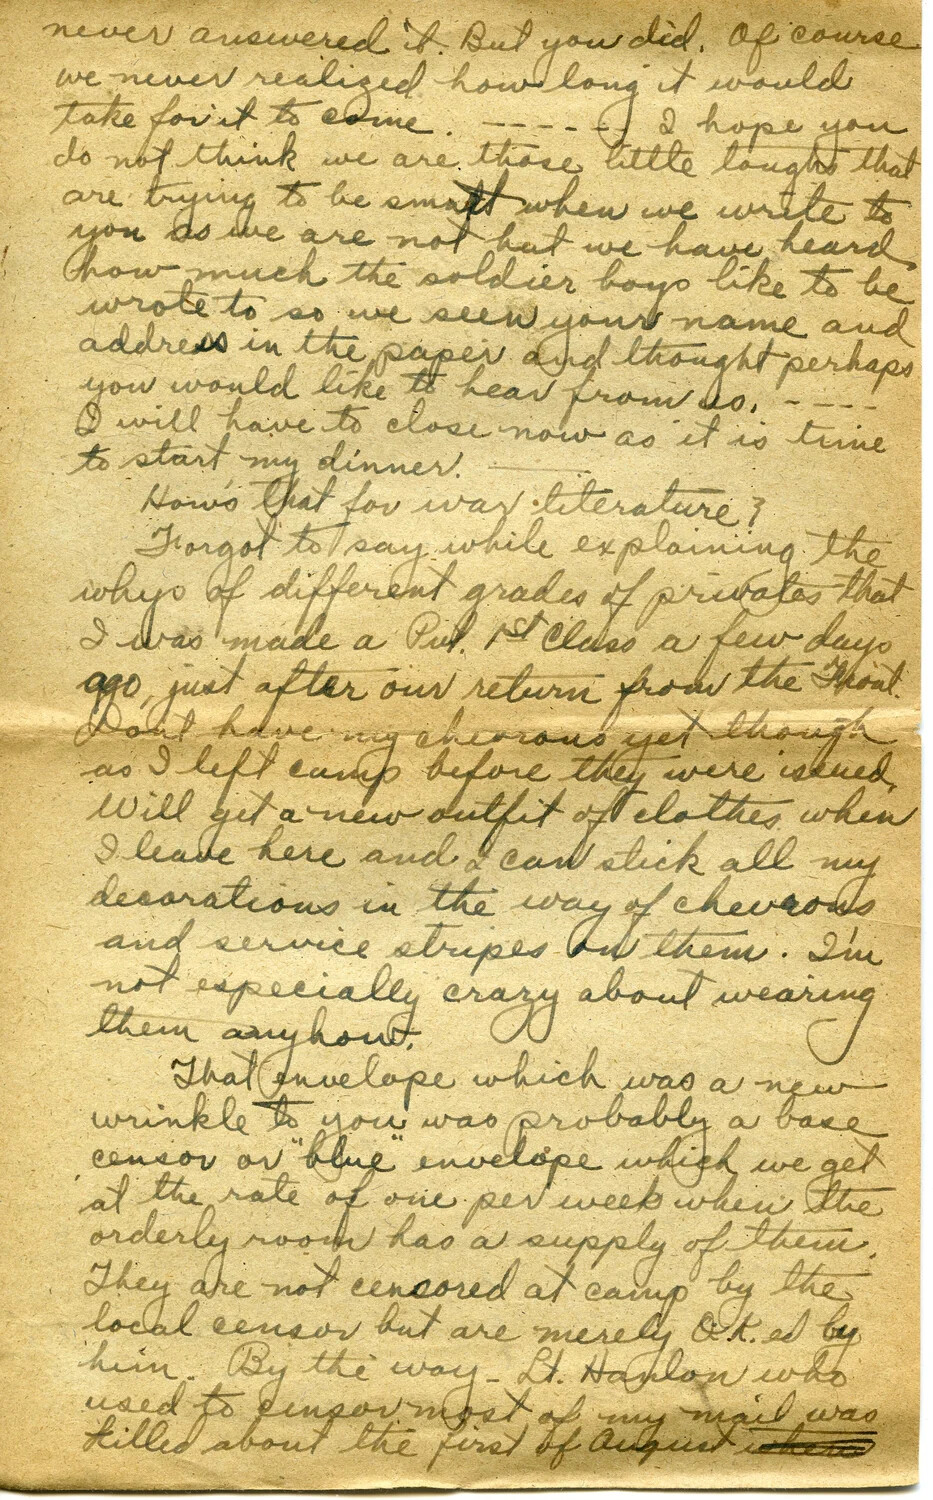 never answered it. But you did. Of course
we never realized how long it would
take for it to come. ------ I hope you
do not think we are those little toughs that
are trying to be smart when we write to
you as we are not but we have heard
how much the soldier boys like to be
wrote to so we seen your name and
address in the paper and thought perhaps
you would like to hear from us. ----
I will have to close now as it is time
to start my dinner. ——
How's that for war literature?
Forgot to say while explaining the
whys of different grades of privates that
I was made a Pvt. 1st Class a few days
ago, just after our return from the Front.
Dont have my chevrons yet though
as I left camp before they were issued.
Will get a new outfit of clothes when
I leave here and I can stick all my
decorations in the way of chevrons
and service stripes on them. I'm
not especially crazy about wearing
them anyhow.
That envelope which was a new
wrinkle to you was probably a base
censor or "blue" envelope which we get
at the rate of one per week when the
orderly room has a supply of them.
They are not censored at camp by the
local censor but are merely O.K.ed by
him. By the way - Lt. Hanlon who
used to censor most of my mail was
killed about the first of August when